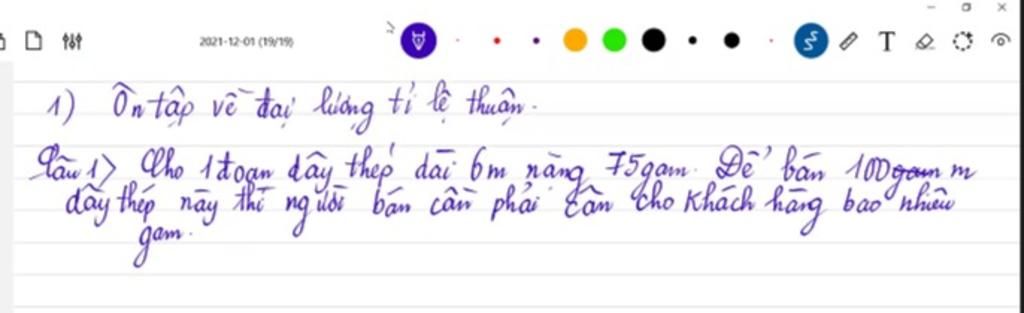 2021-12-01 (19/19)
T
1) Ôn tập về đại lượng tỉ lệ thuận.
Câu 1) Cho 1 đoạn dây thép dài 6m nặng 75gam. Để bán 100 gam m
dây thép này thì người bán cần phải cân cho khách hàng bao nhiêu
gam.